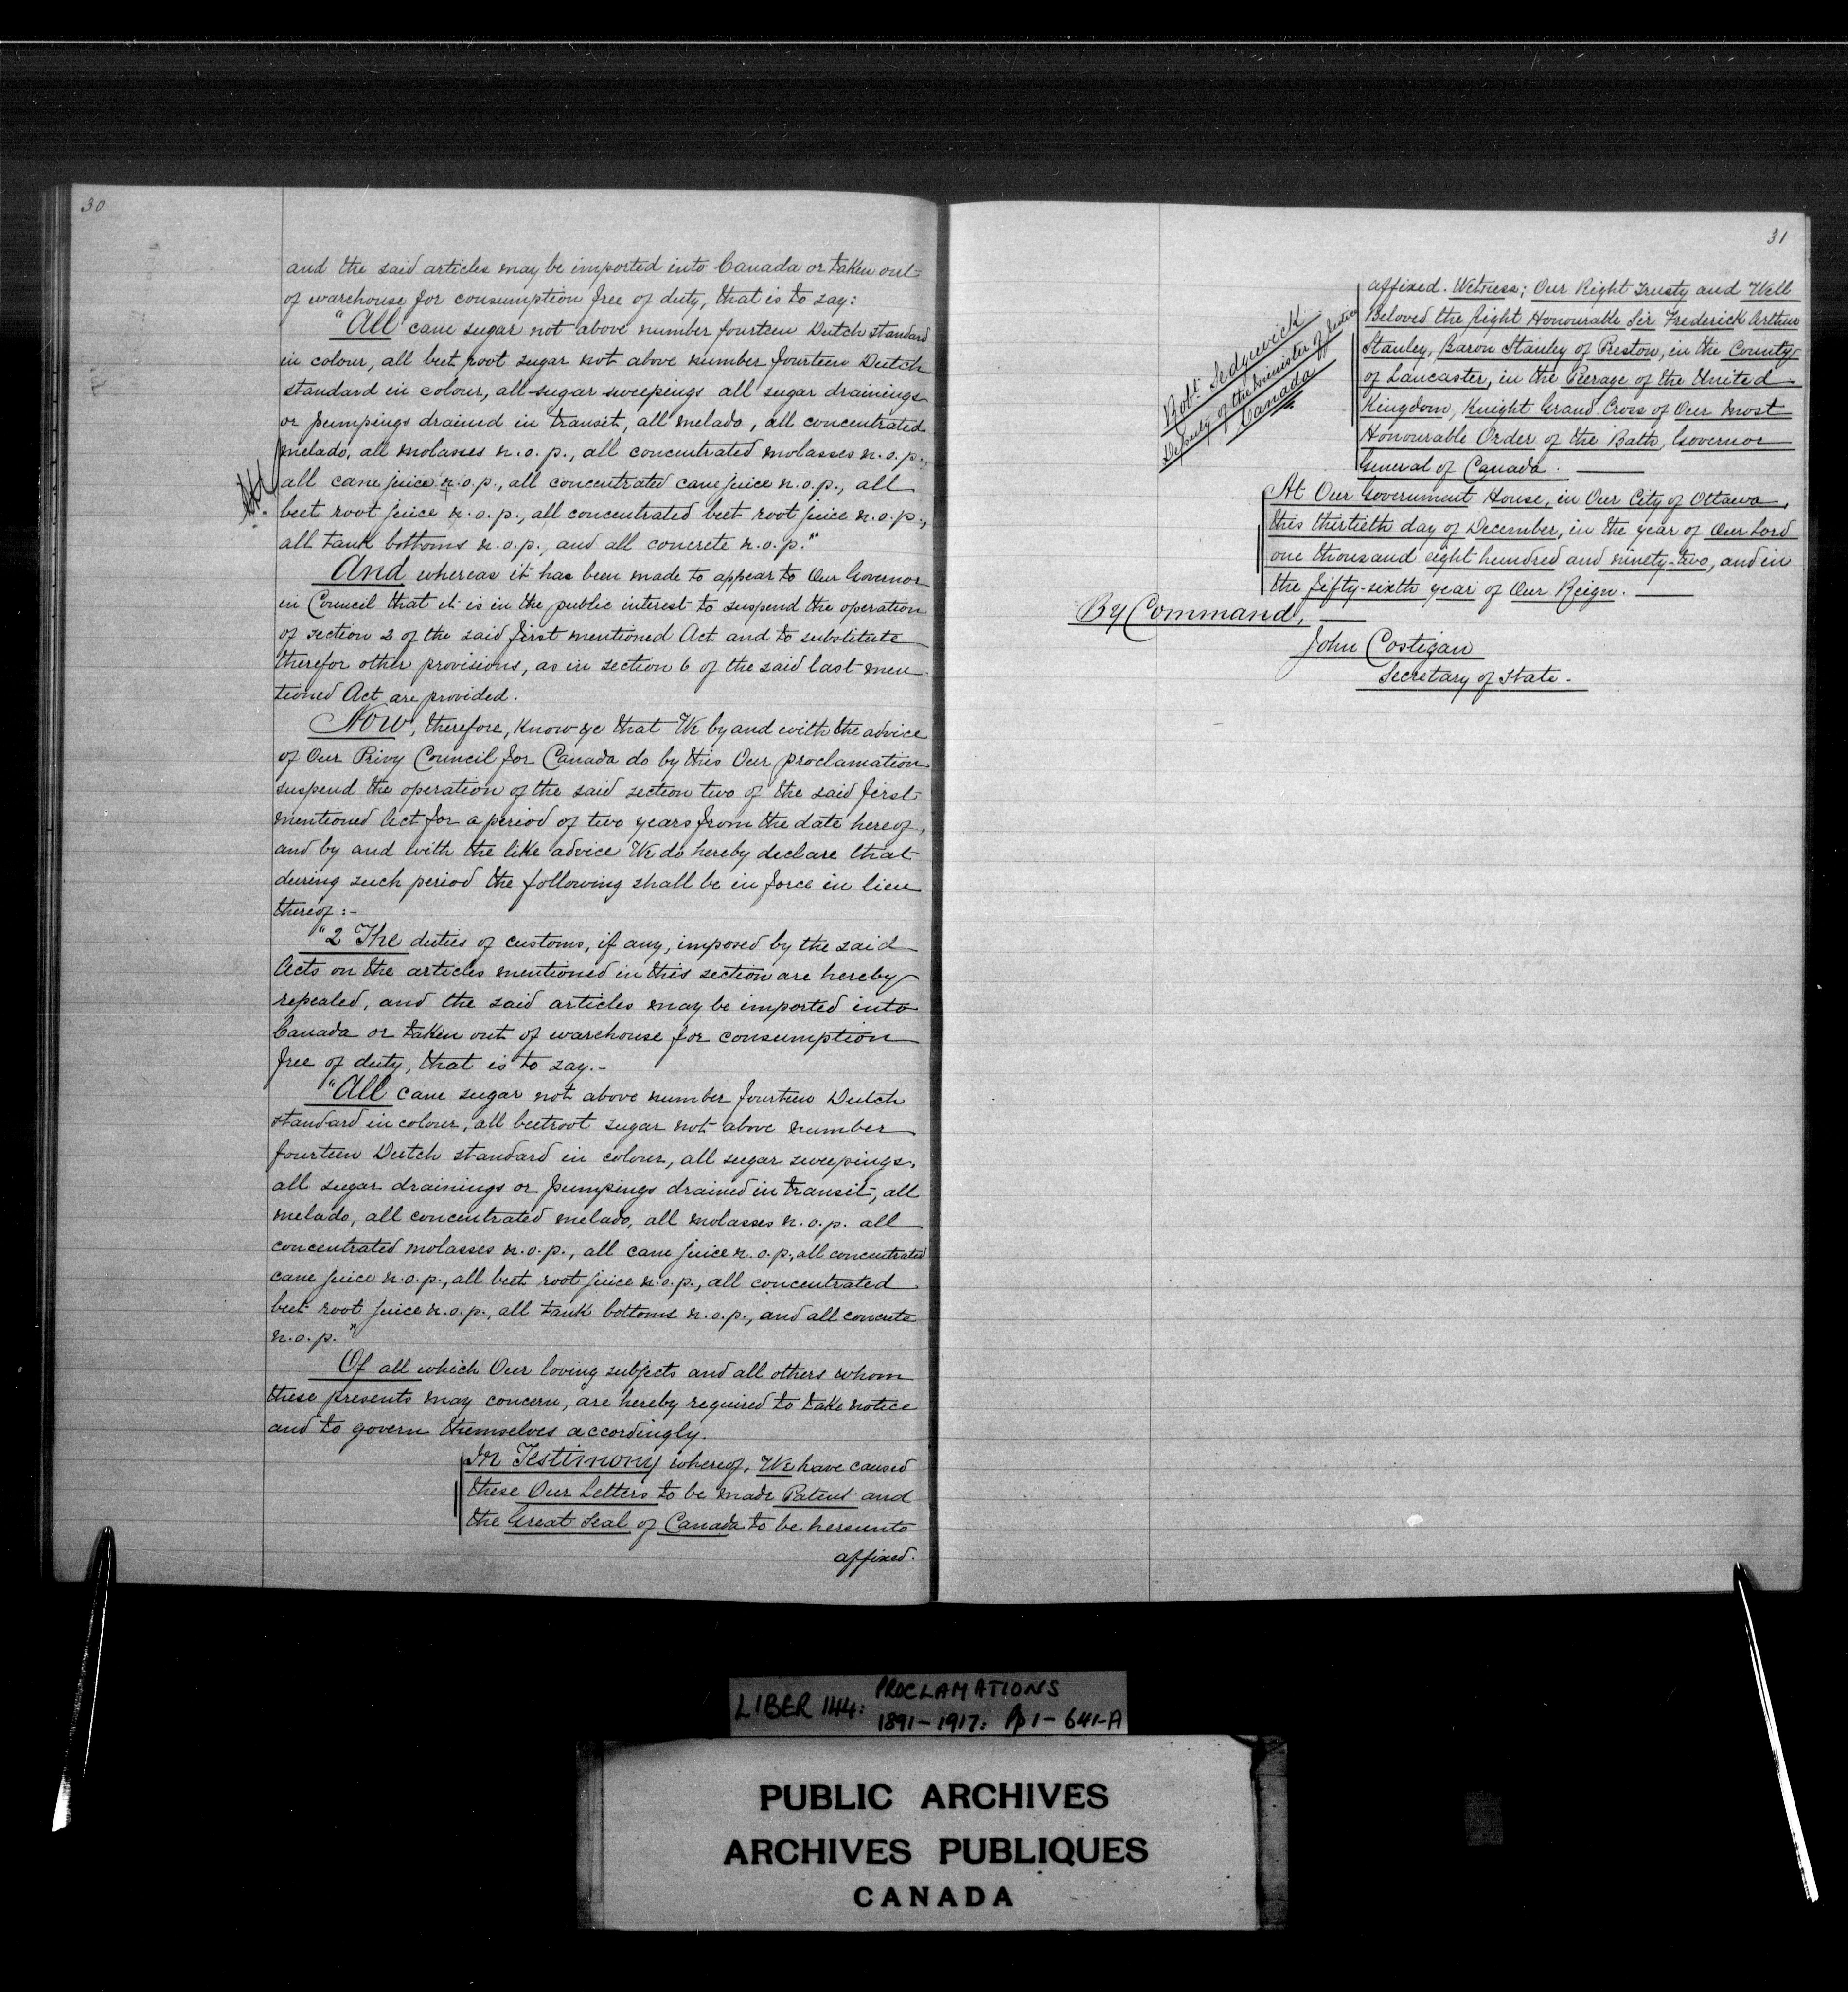 30
and the said articles may be imported into Canada or taken out
of warehouse for consumption free of duty, that is to say:
"All cane sugar not above number fourteen Dutch standard
in colour, all beet root sugar not above number fourteen Dutch
standard in colour, all sugar sweepings all sugar drainings
or pumpings drained in transit, all melado, all concentrated
melado, all molasses n.o.p., all concentrated molasses n.o.p.,
all cane juice n.o.p., all concentrated cane juice n.o.p., all
beet root juice n.o.p., all concentrated beet root juice n.o.p.,
all tank bottoms n.o.p., and all concrete n.o.p."
And whereas it has been made to appear to Our Governor
in Council that it is in the public interest to suspend the operation
of section 2 of the said first mentioned Act and to substitute
therefor other provisions, as in section 6 of the said last men-
tioned Act are provided.
Now, therefore, know ye that We by and with the advice
of Our Privy Council for Canada do by this Our proclamation
suspend the operation of the said section two of the said first
mentioned Act for a period of two years from the date hereof,
and by and with the like advice We do hereby declare that
during such period the following shall be in force in lieu
thereof:-
"2 The duties of customs, if any, imposed by the said
Acts on the articles mentioned in this section are hereby
repealed, and the said articles may be imported into
Canada or taken out of warehouse for consumption
free of duty, that is to say.-
"All cane sugar not above number fourteen Dutch
standard in colour, all beetroot sugar not above number
fourteen Dutch standard in colour, all sugar sweepings,
all sugar drainings or pumpings drained in transit, all
melado, all concentrated melado, all molasses n.o.p. all
concentrated molasses n.o.p., all cane juice n.o.p., all concentrated
cane juice n.o.p., all beet root juice n.o.p., all concentrated
beet root juice n.o.p., all tank bottoms n.o.p., and all concrete
n.o.p."
Of all which Our loving subjects and all others whom
these presents may concern, are hereby required to take notice
and to govern themselves accordingly.
In Testimony whereof, We have caused
these Our Letters to be made Patent and
the Great Seal of Canada to be hereunto
affixed.
31
affixed. Witness; Our Right Trusty and Well
Beloved the Right Honourable Sir Frederick Arthur
Stanley, Baron Stanley of Preston, in the County
of Lancaster, in the Peerage of the United
Kingdom, Knight Grand Cross of Our Most
Honourable Order of the Bath, Governor
General of Canada.
Robt. Sedgewick
Deputy of the Minister of Justice
Canada
At Our Government House, in Our City of Ottawa,
this thirtieth day of December, in the year of Our Lord
one thousand eight hundred and ninety-two, and in
the fifty-sixth year of Our Reign.
By Command,
John Costigan
Secretary of State.
LIBER 144: PROCLAMATIONS
1891-1917: Pp 1-641-A
PUBLIC ARCHIVES
ARCHIVES PUBLIQUES
CANADA